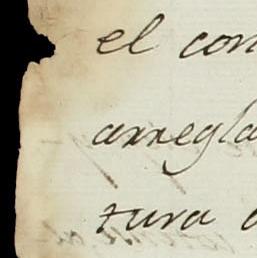 el con
arregla
tura